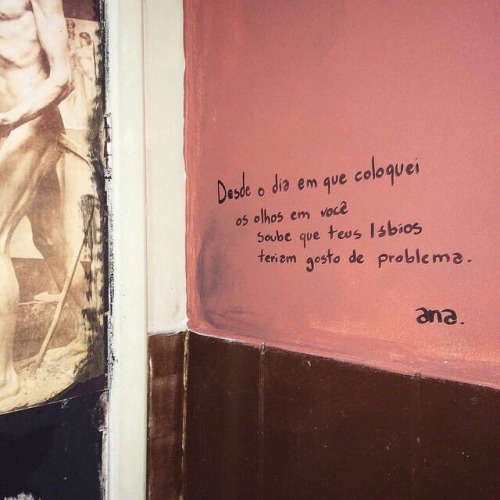 Desde o dia em que coloquei
os olhos em você
soube que teus lábios
teriam gosto de problema.
ana.